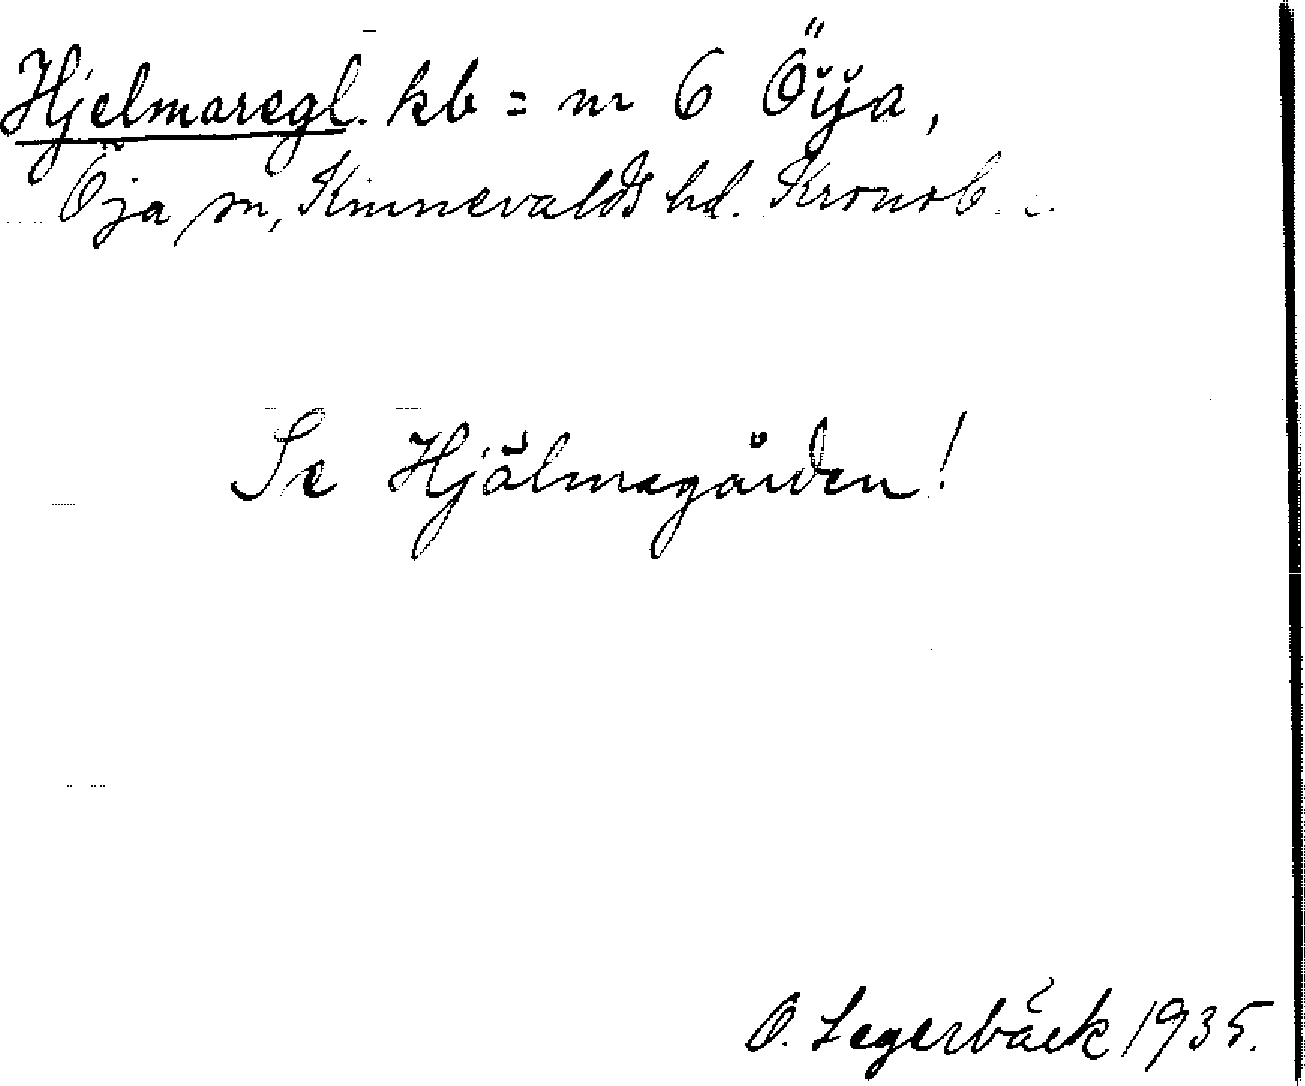 Hjelmaregl. kb = nr 6 Öija,
Öja sn, Kinnevalds hd. Kronob.
Se Hjälmagården!
O. Segerbäck 1935.